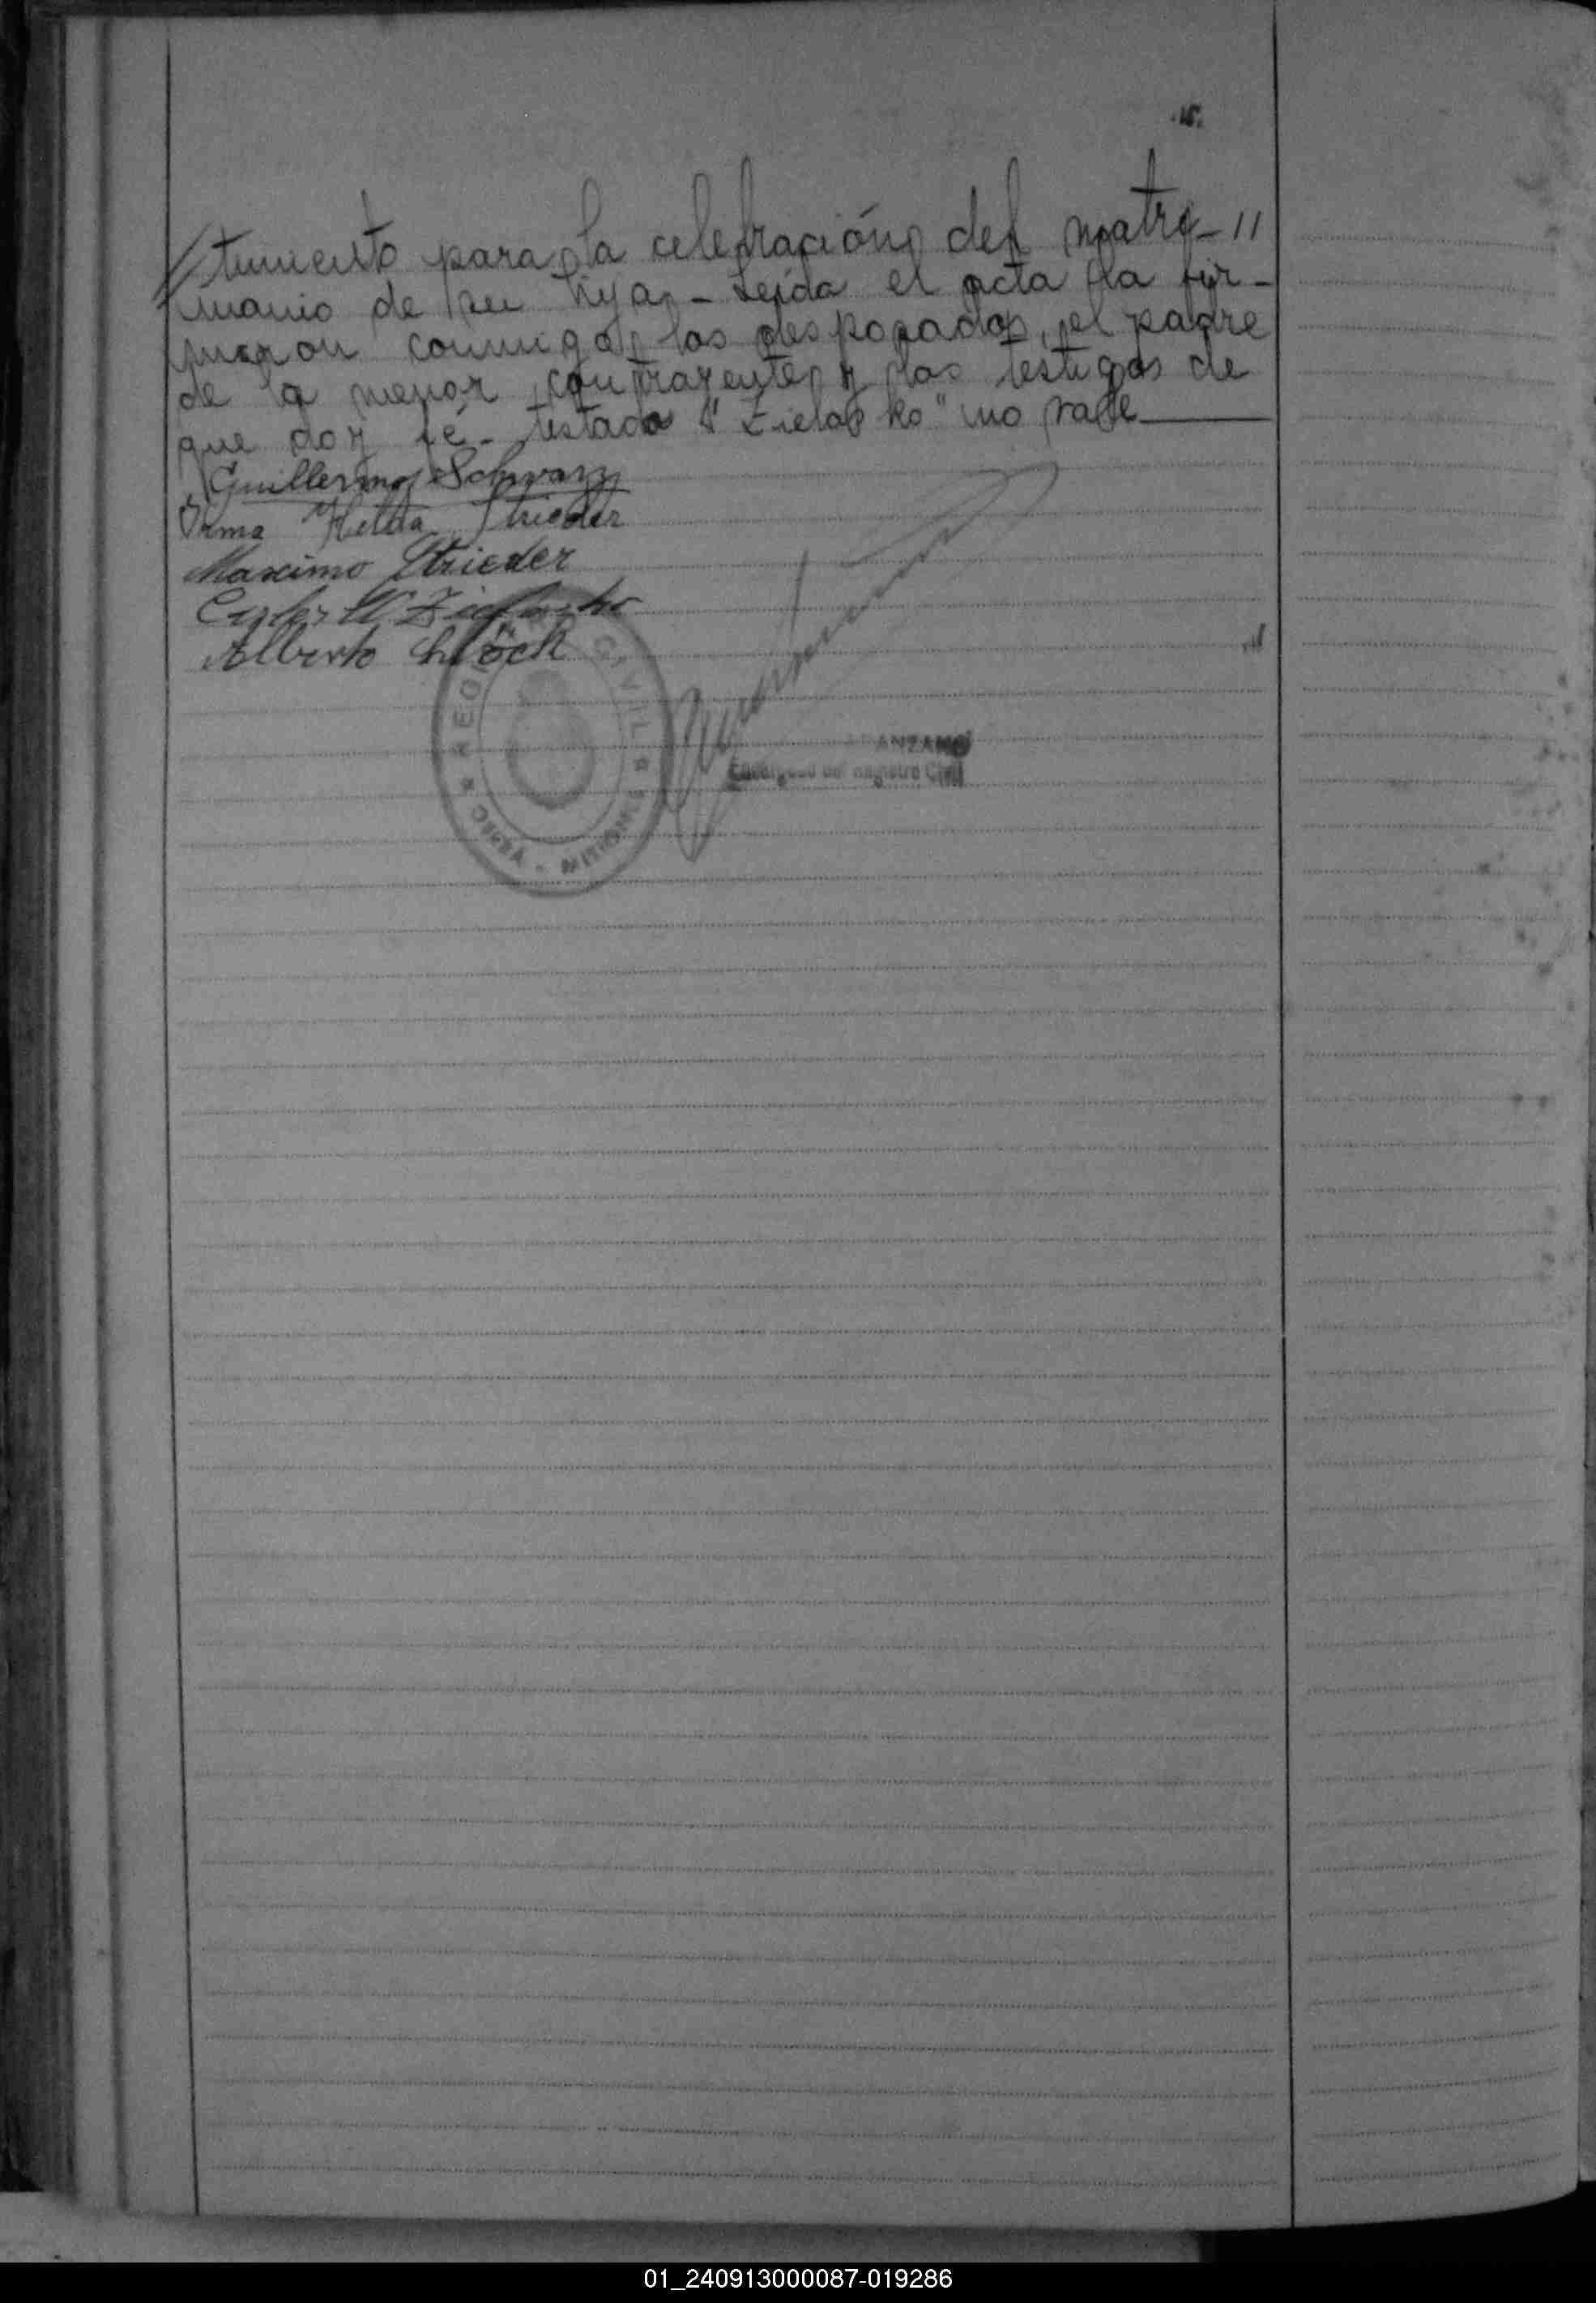 //timiento para la celebración del matri-//
monio de su hija.- Leída el acta la fir-
maron conmigo, los desposados, el padre
de la menor contrayente y los testigos de
que doy fé.- Testado "Zielasko" no vale
Guillermo Schwarz
Irma Hilda Strieder
Maximo Strieder
Carlos Zielasko
Alberto Chlöch
REGISTRO CIVIL
MISIONES
Encargado del Registro Civil
01_240913000087-019286